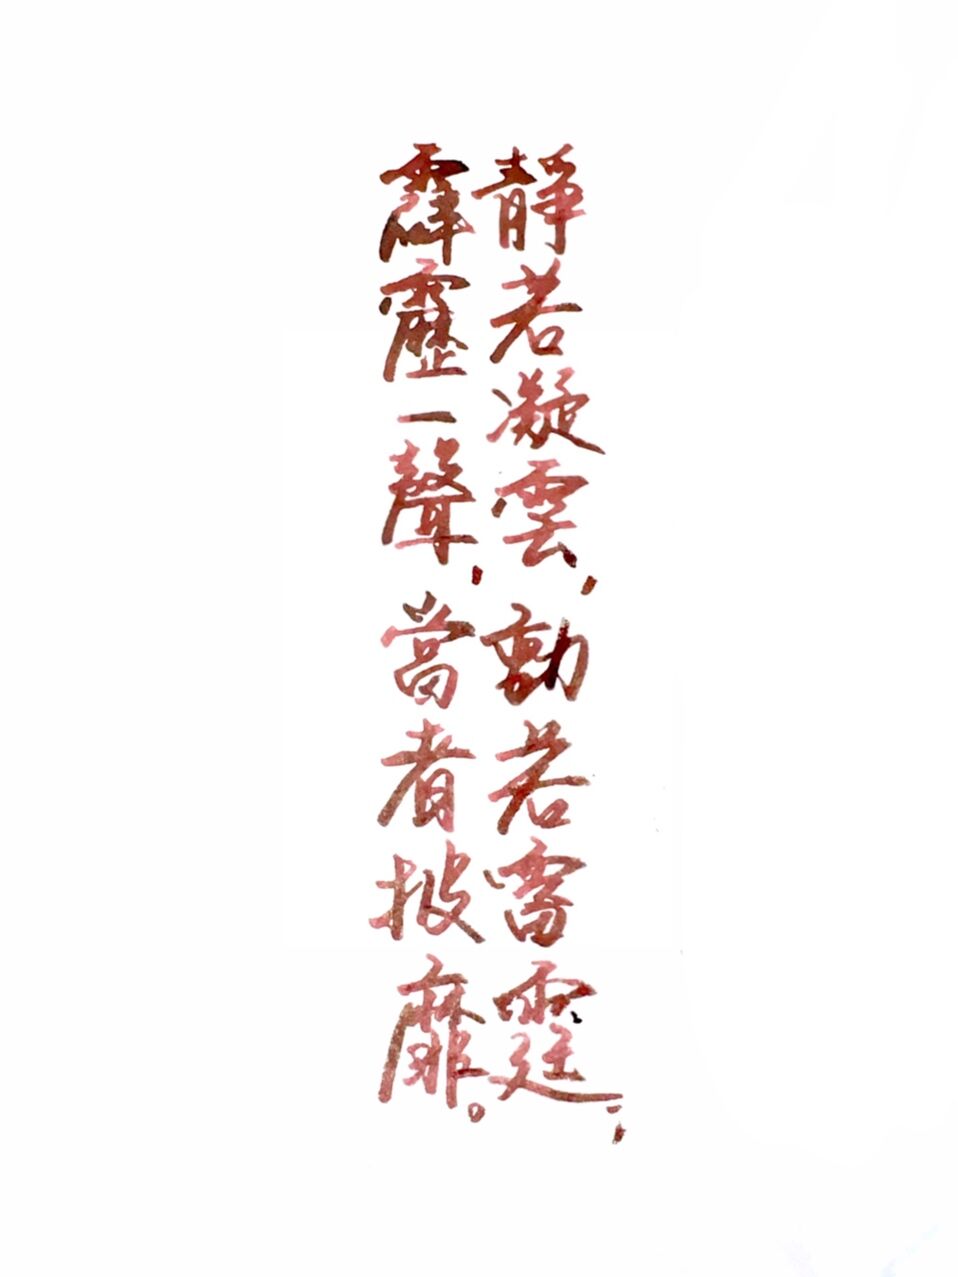 靜若凝雲，動若雷霆，
霹靂一聲，當者披靡。